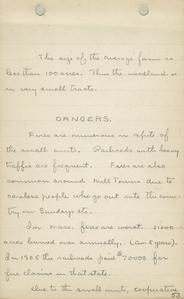 The size of the average farm is
less than 100 acres. Thus the woodland is
in very small tracts.
DANGERS.
Fires are numerous in spite of
the small units. Railroads with heavy
traffic are frequent. Fires are also
common around Mill Towns due to
careless people who go out into the coun-
try on Sundays etc.
In Mass. fires are worst.
acres burned over annually, (Av. 5 years).
In 1905 the railroads paid $20000 for
fire claims in that state.
Due to the small unit, cooperative
53